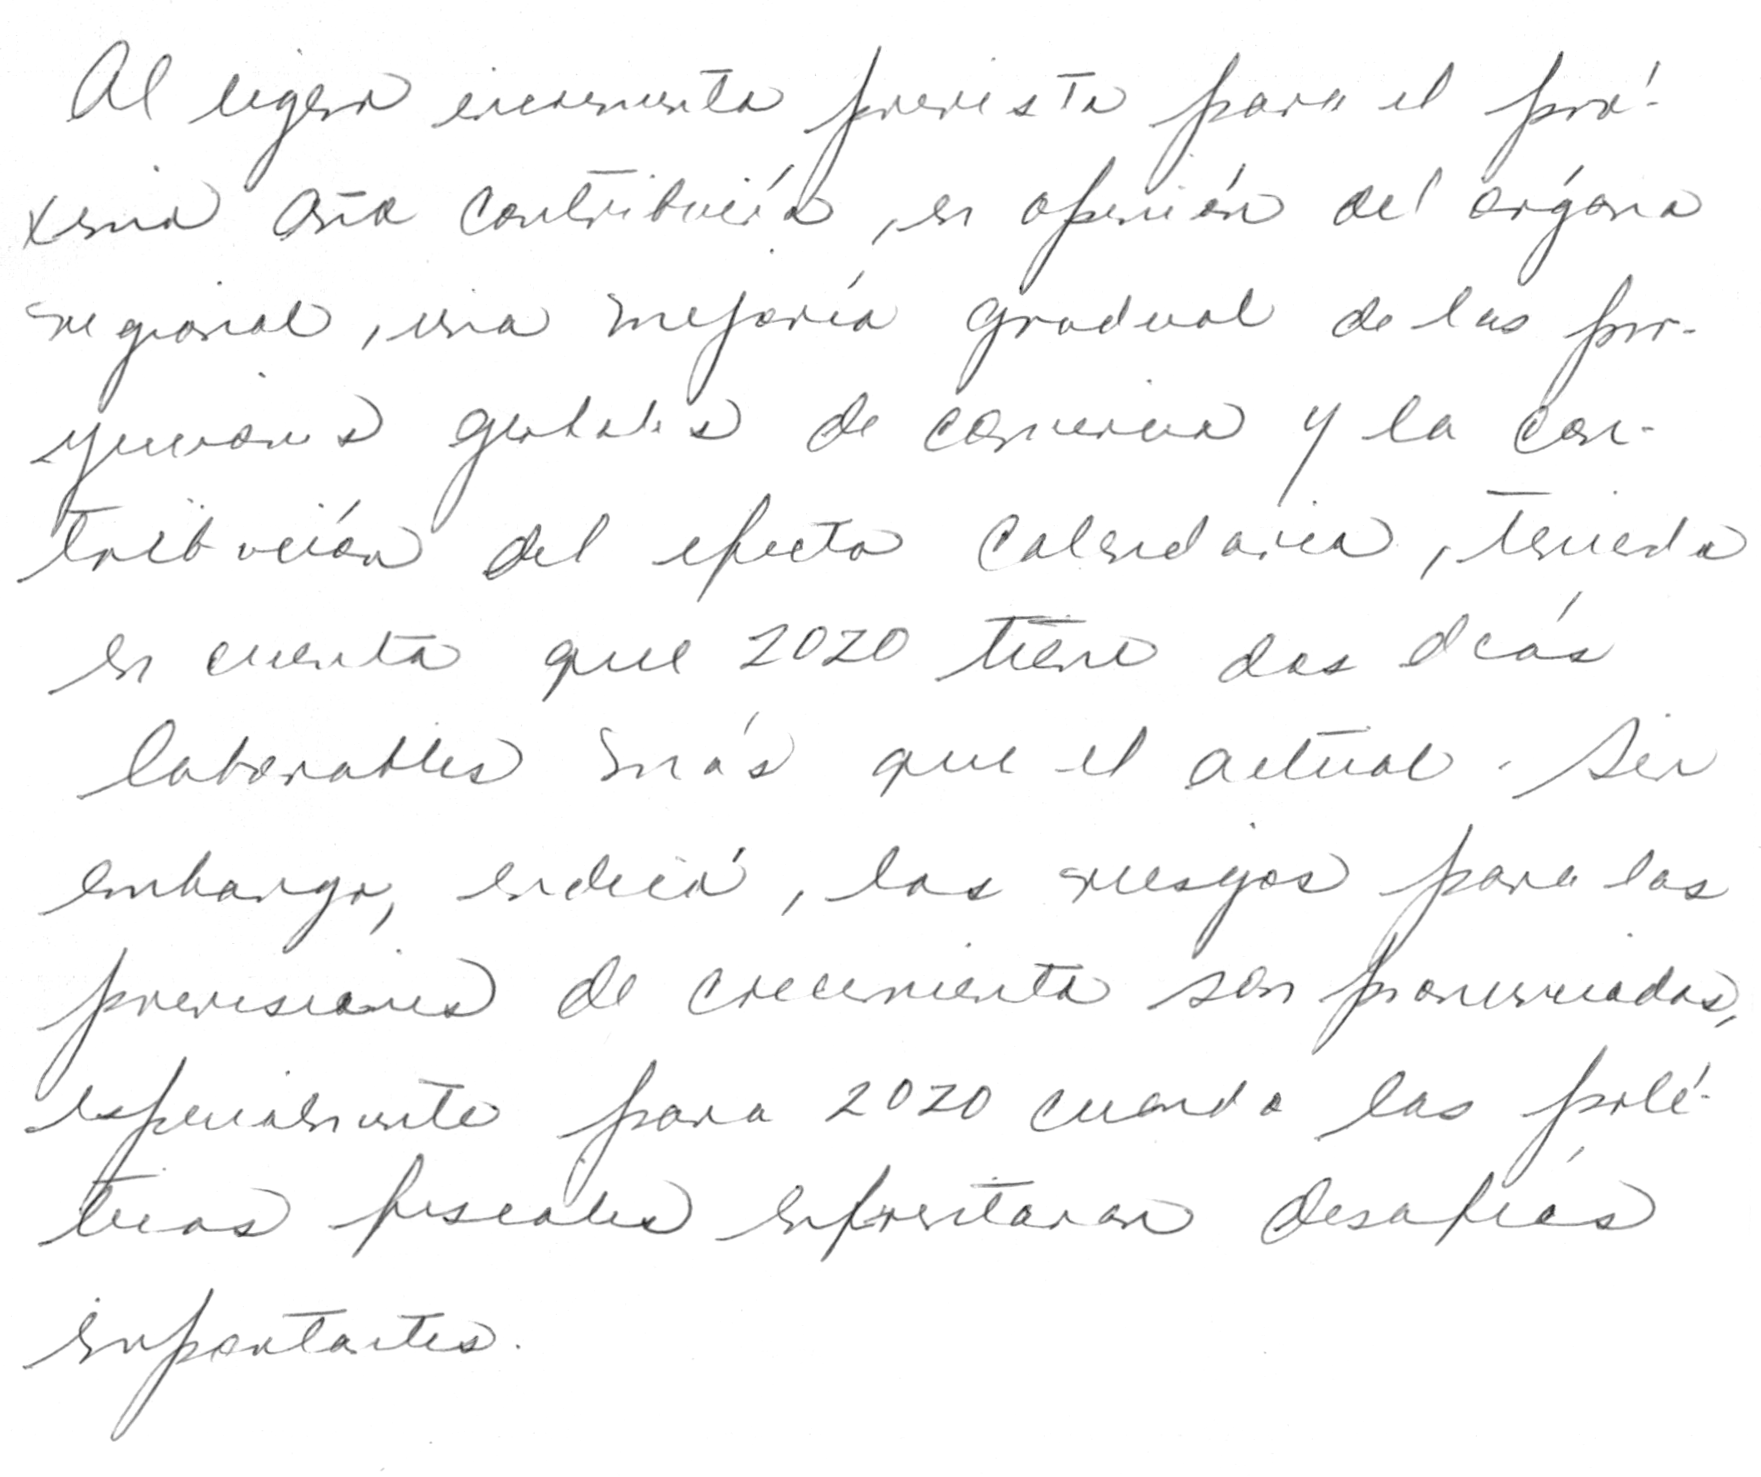 Al ligero incremento previsto para el pró-
ximo año contribuiría, en opinión del órgano
regional, una mejoría gradual de las pro-
yecciones globales de comercio y la con-
tribución del efecto calendario, teniendo
en cuenta que 2020 tiene dos días
laborables más que el actual. Sin
embargo, indicó, los riesgos para las
previsiones de crecimiento son pronunciados,
especialmente para 2020 cuando las polí-
ticas fiscales enfrentaran desafíos
importantes.